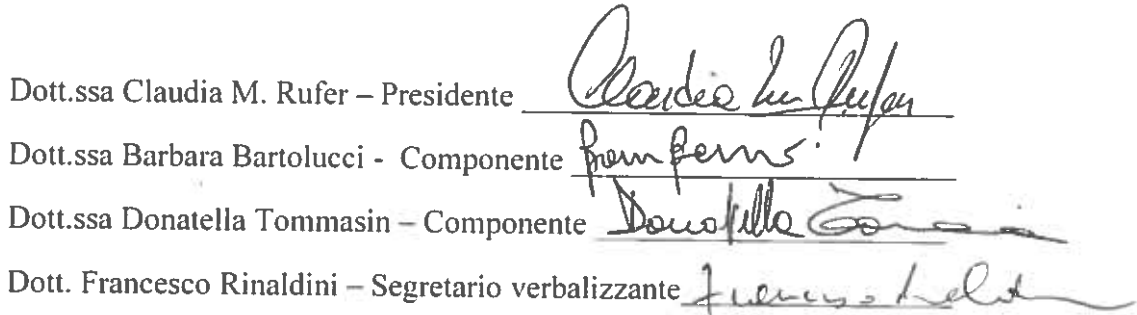 Dott.ssa Claudia M. Rufer – Presidente Claudia M Rufer
Dott.ssa Barbara Bartolucci - Componente
Dott.ssa Donatella Tommasin – Componente Donatella
Dott. Francesco Rinaldini – Segretario verbalizzante Francesco